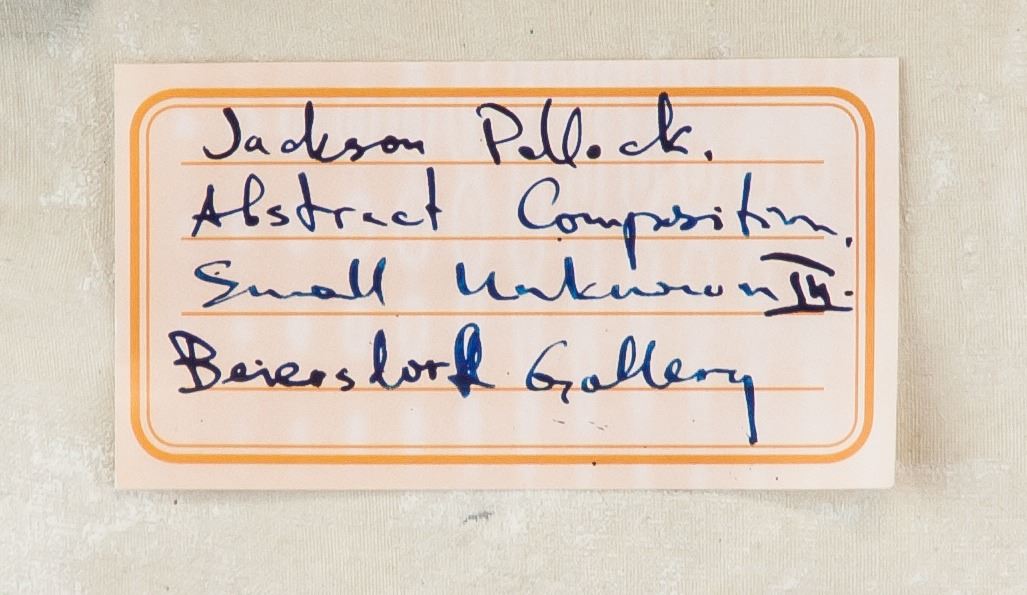 Jackson Pollock.
Abstract Composition.
Small Unknown
Beiersdorf Gallery